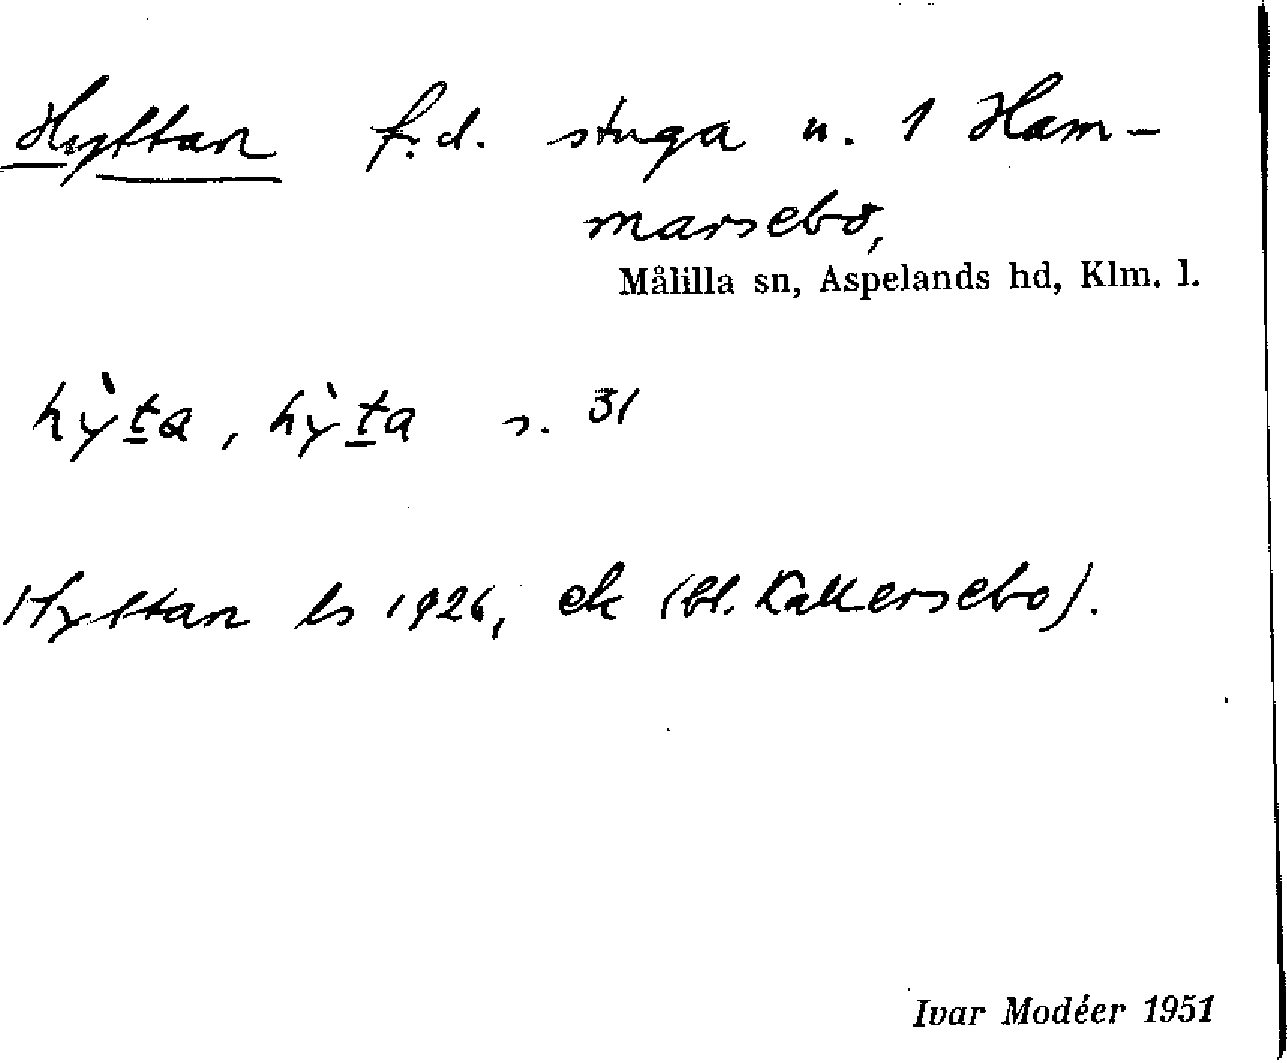 Hyttan f.d. stuga u. 1 Ham-
marsebo,
Målilla sn, Aspelands hd, Klm. l.
hỳta, hỳta s. 31
Hyttan ls 1926, ek (bl. Kallersebo).
Ivar Modéer 1951